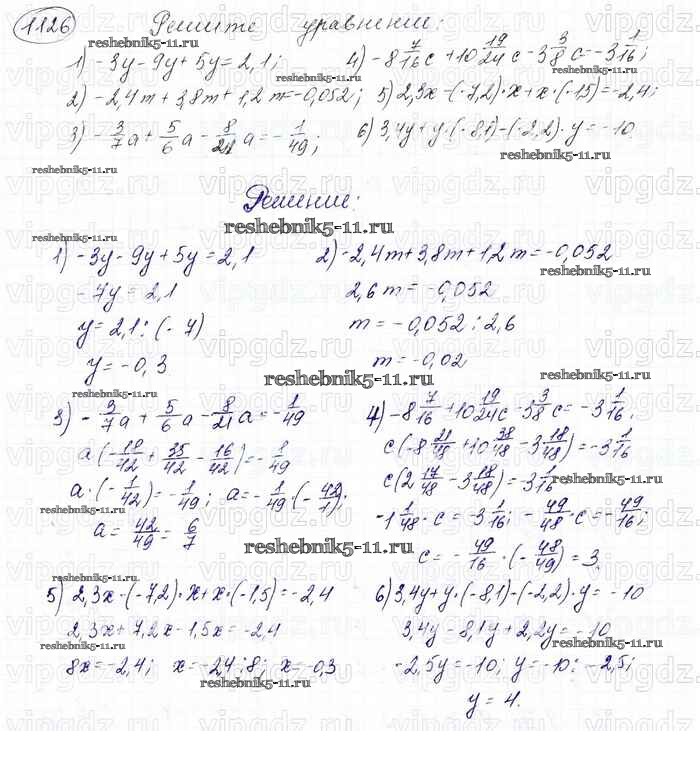 1126 Решите уравнение:
1) -3y-9y+5y=2,1; 4) -8 7/16 c+10 19/24 c-3 3/8 c=-3 1/16;
2) -2,4m+3,8m+1,2m=-0,052; 5) 2,3x-(-7,2)·x+x·(-1,5)=-2,4;
3) -3/7 a+5/6 a-8/21 a=-1/49; 6) 3,4y+y·(-8,1)-(-2,2)·y=-10
reshebnik5-11.ru
Решение:
1) -3y-9y+5y=2,1 2) -2,4m+3,8m+1,2m=-0,052
-7y=2,1 2,6m=-0,052
y=2,1:(-7) m=-0,052:2,6
y=-0,3 m=-0,02
reshebnik5-11.ru
3) -3/7 a+5/6 a-8/21 a=-1/49 4) -8 7/16 +10 19/24 c-3 3/8 c=-3 1/16;
a(-18/42+35/42-16/42)=-1/49 c(-8 21/48+10 38/48-3 18/48)=-3 1/16
a·(-1/42)=-1/49; a=-1/49·(-42/1); c(2 17/48-3 18/48)=-3 1/16
a=42/49=6/7 -1 1/48·c=-3 1/16; -49/48·c=-49/16;
c=-49/16·(-48/49)=3.
reshebnik5-11.ru
5) 2,3x-(-7,2)·x+x·(-1,5)=-2,4 6) 3,4y+y·(-8,1)-(-2,2)·y=-10
2,3x+7,2x-1,5x=-2,4 3,4y-8,1y+2,2y=-10
8x=-2,4; x=-2,4:8; x=-0,3 -2,5y=-10; y=-10:-2,5;
reshebnik5-11.ru
y=4.
vipgdz.ru